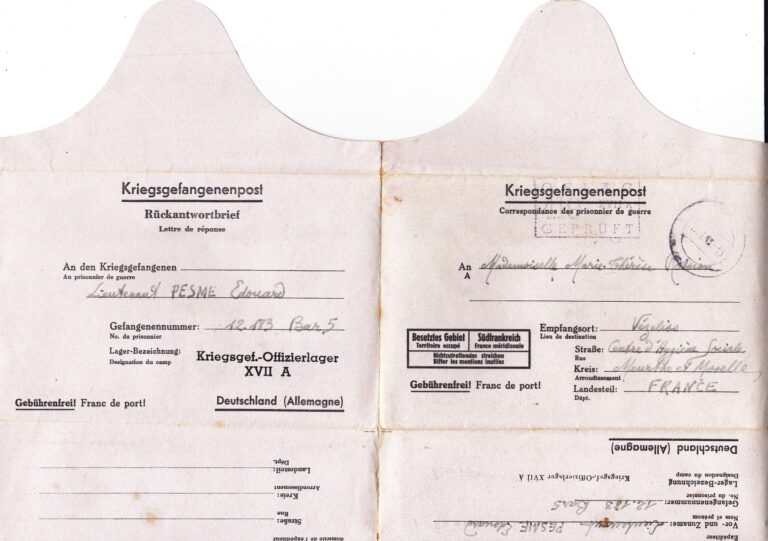 Kriegsgefangenenpost
Rückantwortbrief
Lettre de réponse
An den Kriegsgefangenen
Au prisonnier de guerre
Lieutenant PESME Edouard
Gefangenennummer: 12.183 Bar 5
No. du prisonnier
Lager-Bezeichnung:
Désignation du camp
Kriegsgef.-Offizierlager
XVII A
Gebührenfrei! Franc de port!
Deutschland (Allemagne)
Landesteil:
Dépt.
Kreis:
Arrondissement
Straße:
Rue
Kriegsgefangenenpost
Correspondance des prisonnier de guerre
GEPRÜFT
An Mademoiselle Marie-Thérèse
A
Besetztes Gebiet
Territoire occupé
Südfrankreich
France méridionale
Nichtzutreffendes streichen
Biffer les mentions inutiles
Empfangsort: Vézelise
Lieu de destination
Straße: Centre d'Hygiène Sociale
Rue
Kreis: Meurthe et Moselle
Arrondissement
Landesteil: FRANCE
Dépt.
Gebührenfrei! Franc de port!
Deutschland (Allemagne)
Lager-Bezeichnung
Désignation du camp
Kriegsgef.-Offizierlager XVII A
Gefangenennummer: 12.183 Bar 5
No. du prisonnier
Vor- und Zuname: Lieutenant PESME Edouard
Nom et prénom
Expéditeur